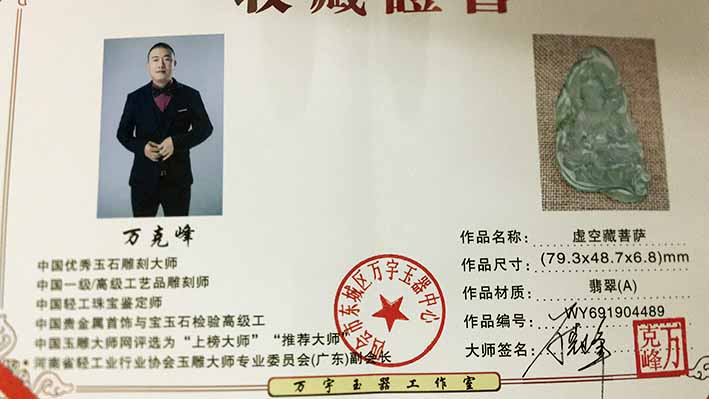 收藏證書
万克峰
中国优秀玉石雕刻大师
中国一级/高级工艺品雕刻师
中国轻工珠宝鉴定师
中国贵金属首饰与宝玉石检验高级工
中国玉雕大师网评选为“上榜大师”“推荐大师”
河南省轻工业行业协会玉雕大师专业委员会(广东)副会长
四会市东城区万字玉器中心
作品名称: 虚空藏菩萨
作品尺寸: (79.3x48.7x6.8)mm
作品材质: 翡翠(A)
作品编号: WY691904489
大师签名:
万克峰
万字玉器工作室